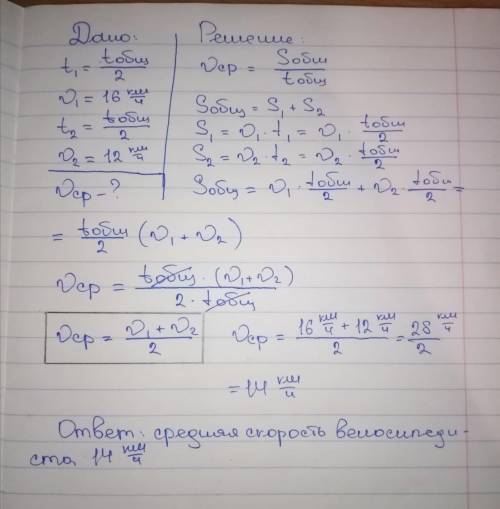 Дано:
t₁ = tобщ/2
υ₁ = 16 км/ч
t₂ = tобщ/2
υ₂ = 12 км/ч
υср - ?
Решение:
υср = Sобщ/tобщ
Sобщ = S₁ + S₂
S₁ = υ₁ · t₁ = υ₁ · tобщ/2
S₂ = υ₂ · t₂ = υ₂ · tобщ/2
Sобщ = υ₁ · tобщ/2 + υ₂ · tобщ/2 =
= tобщ/2 (υ₁ + υ₂)
υср = tобщ · (υ₁ + υ₂)/2 · tобщ
υср = υ₁ + υ₂/2 υср = 16 км/ч + 12 км/ч/2 = 28 км/ч/2
= 14 км/ч
Ответ: средняя скорость велосипеди-
ста 14 км/ч